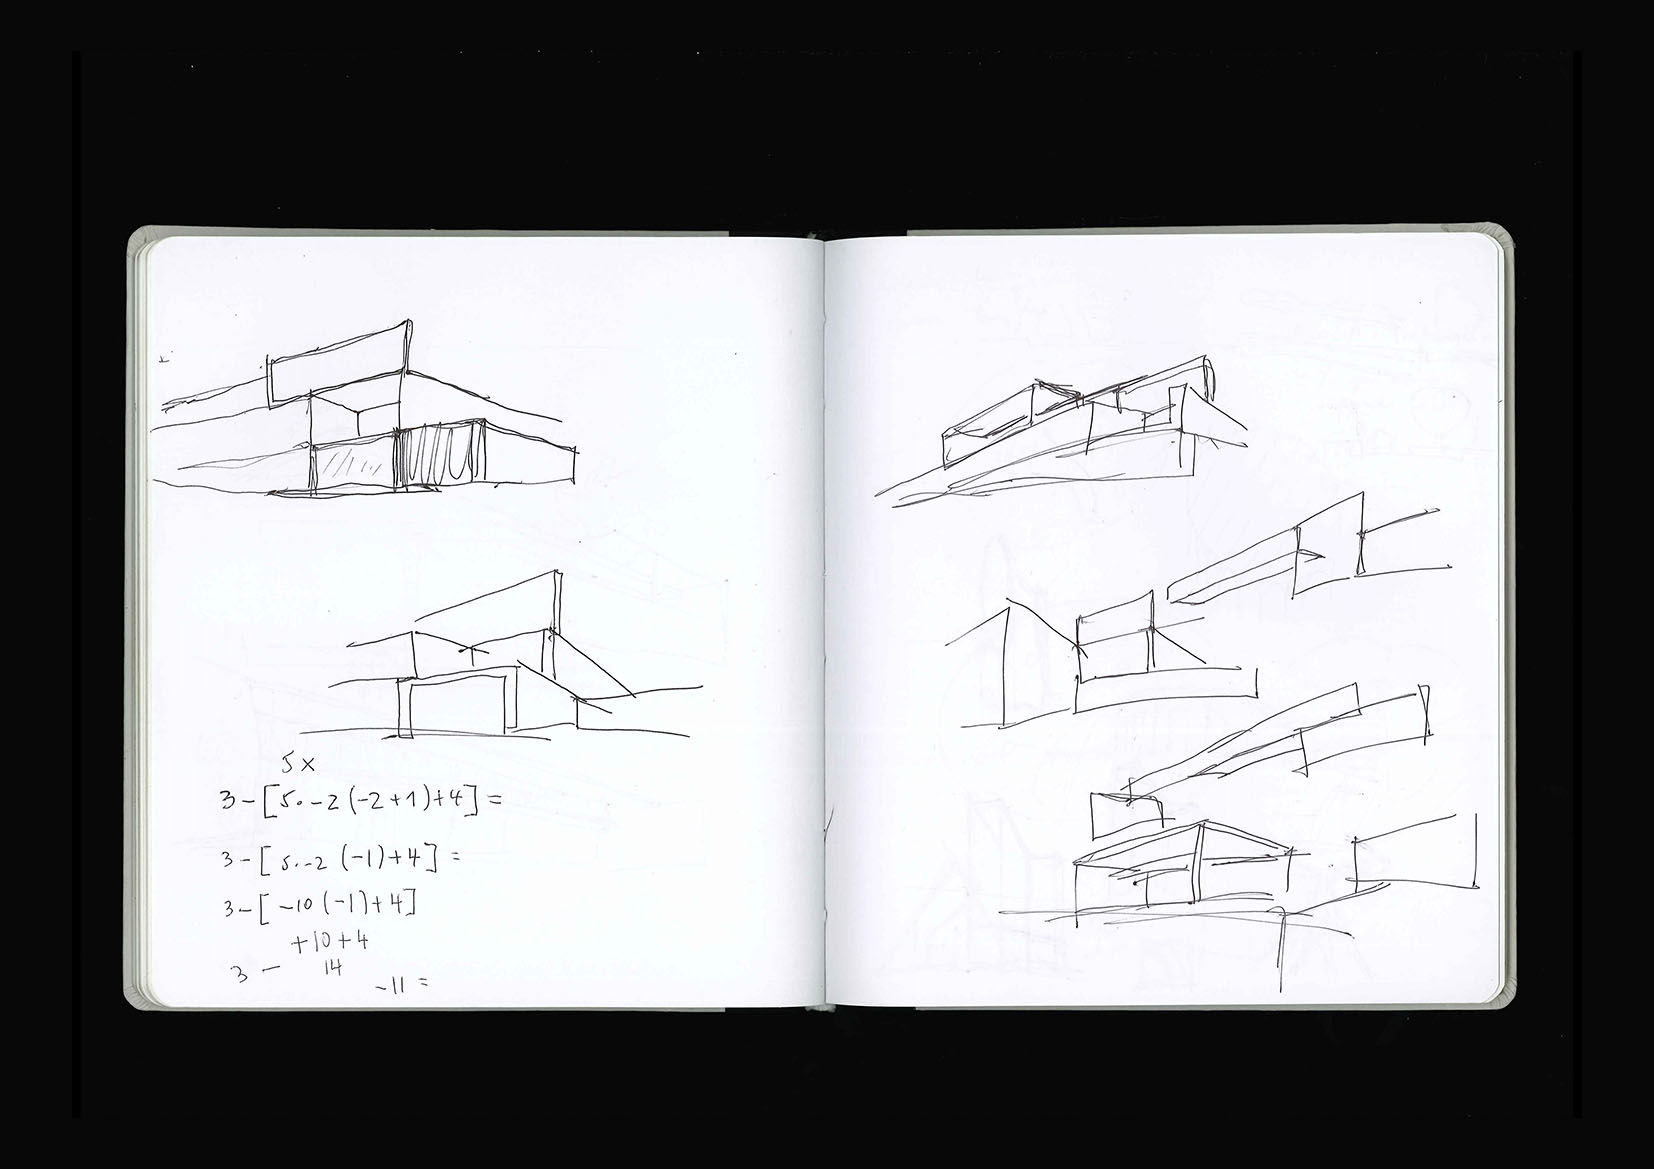 5x
3-[5·-2(-2+1)+4]=
3-[5·-2(-1)+4]=
3-[-10(-1)+4]
+10+4
3- 14
-11=